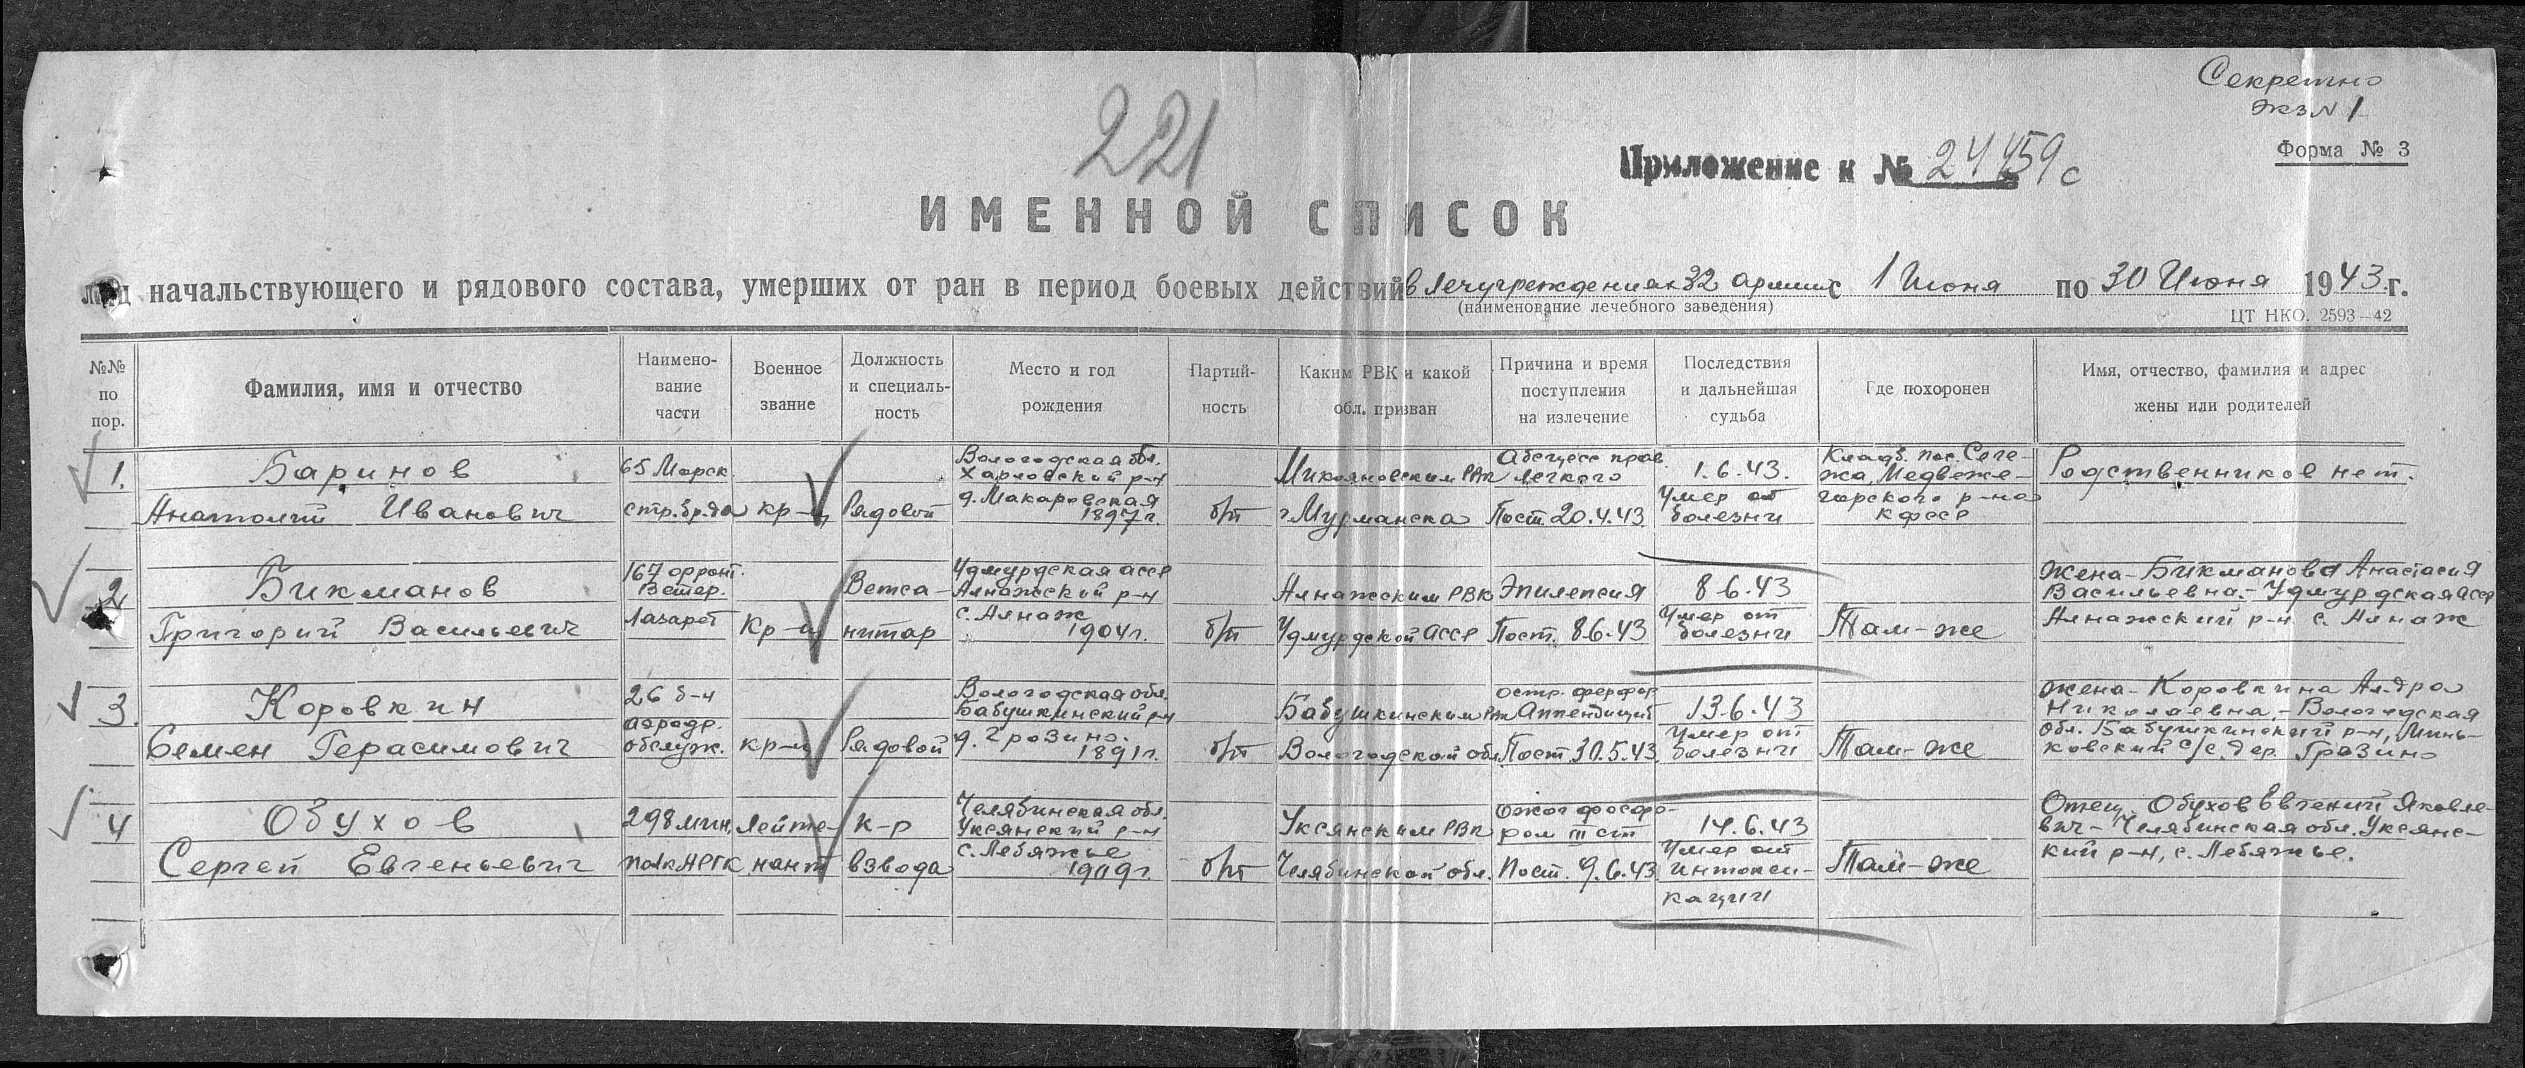 Секретно
Экз № 1
221
Форма № 3
Приложение к № 24459с
ИМЕННОЙ СПИСОК
лиц начальствующего и рядового состава, умерших от ран в период боевых действий в лечучреждениях 32 армии с 1 Июня по 30 Июня 1943 г.
(наименование лечебного заведения)
ЦТ НКО. 2593—42
№№ по пор.
Фамилия, имя и отчество
Наимено-
вание
части
Военное
звание
Должность
и специаль-
ность
Место и год
рождения
Партий-
ность
Каким РВК и какой
обл. призван
Причина и время
поступления
на излечение
Последствия
и дальнейшая
судьба
Где похоронен
Имя, отчество, фамилия и адрес
жены или родителей
1.
Баринов
Анатолий Иванович
65 Морск.
стр. бр-да
кр-ц
Рядовой
Вологодская обл.
Харовский р-н
д. Макаровская
1897 г.
б/п
Микояновским РВК
г. Мурманска
Абсцесс прав.
легкого
Пост 20.4.43
1.6.43.
Умер от
болезни
Кладб. пос. Сеге-
жа, Медвеже-
горского р-на
КФССР
Родственников нет.
2
Бикманов
Григорий Васильевич
167 фронт.
Ветер.
Лазарет
Кр-ц
Ветса-
нитар
Удмурдская асср
Алнажский р-н
с. Алнаж
1904 г.
б/п
Алнажским РВК
Удмурдской АССР
Эпилепсия
Пост. 8.6.43
8 6.43
Умер от
болезни
Там-же
Жена-Бикманова Анастасия
Васильевна - Удмурдская асср
Алнажский р-н с. Алнаж
3.
Коровкин
Семен Герасимович
26 б-н
аэродр.
обслуж.
кр-ц
Рядовой
Вологодская обл.
Бабушкинский р-н
д. Грозино.
1891 г.
б/п
Бабушкинским РВК
Вологодской обл.
остр. перфор
Аппендицит
Пост 30.5.43.
13.6.43
Умер от
болезни
Там-же
Жена-Коровкина Ал-дра
Николаевна - Вологодская
обл. Бабушкинский р-н, Минь-
ковский с/с. дер. Грозино
4
Обухов
Сергей Евгеньевич
298 мин.
полк АРГК
Лейте-
нант
к-р
взвода
Челябинская обл.
Уксянский р-н
с. Лебяжье
1909 г.
б/п
Уксянским РВК
Челябинской обл.
Ожог фосфо-
ром III ст
Пост. 9.6.43
14.6.43
Умер от
интокси-
кации
Там-же
Отец. Обухов Евгений Яковле-
вич - Челябинская обл. Уксянс-
кий р-н, с. Лебяжье.